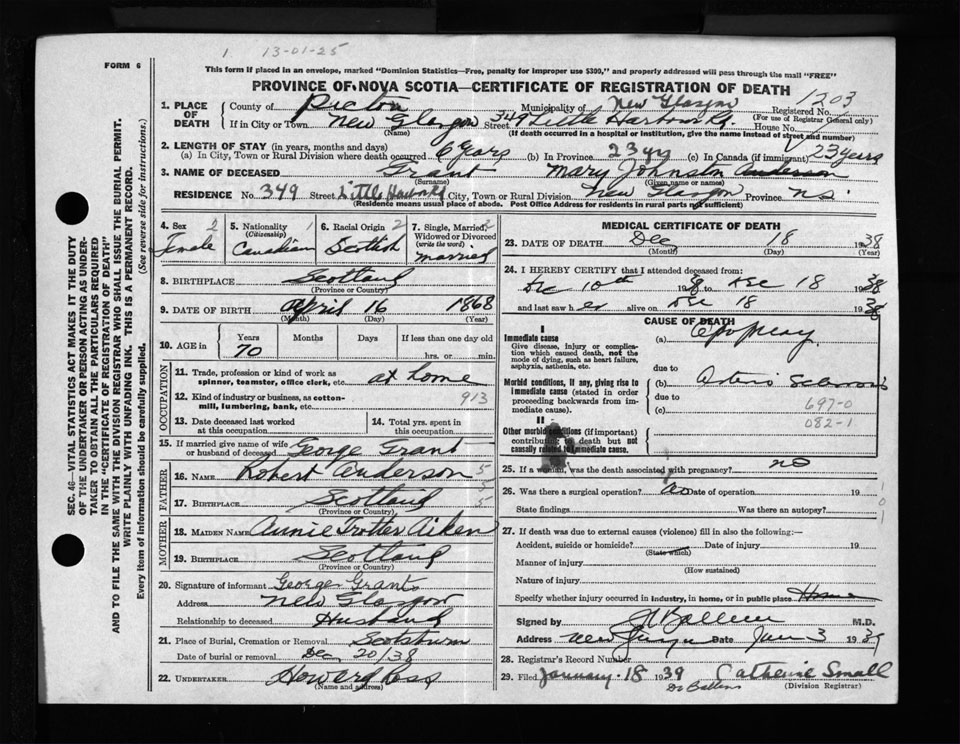 1 13-01-25
FORM 6
This form if placed in an envelope, marked "Dominion Statistics—Free, penalty for improper use $300," and properly addressed will pass through the mail "FREE"
PROVINCE OF NOVA SCOTIA—CERTIFICATE OF REGISTRATION OF DEATH
1203
1. PLACE OF DEATH County of Pictou Municipality of New Glasgow Registered No. (For use of Registrar General only)
If in City or Town New Glasgow (Name) Street 349 Little Harbour Rd. House No.
(If death occurred in a hospital or institution, give the name instead of street and number)
2. LENGTH OF STAY (in years, months and days)
(a) In City, Town or Rural Division where death occurred 6 years (b) In Province 23 yrs (c) In Canada (if immigrant) 23 years
3. NAME OF DECEASED Grant (Surname) Mary Johnston Anderson (Given name or names)
RESIDENCE No. 349 Street Little Harbour Rd City, Town or Rural Division New Glasgow Province N.S.
(Residence means usual place of abode. Post Office Address for residents in rural parts not sufficient)
4. Sex Female
5. Nationality (Citizenship) Canadian
6. Racial Origin Scottish
7. Single, Married, Widowed or Divorced (write the word) Married
8. BIRTHPLACE Scotland
(Province or Country)
9. DATE OF BIRTH April 16 1868
(Month) (Day) (Year)
10. AGE in Years 70 Months Days If less than one day old hrs. or min.
OCCUPATION
11. Trade, profession or kind of work as spinner, teamster, office clerk, etc. at home
12. Kind of industry or business, as cotton-mill, lumbering, bank, etc. 913
13. Date deceased last worked at this occupation
14. Total yrs. spent in this occupation
15. If married give name of wife or husband of deceased George Grant
FATHER
16. NAME Robert Anderson
17. BIRTHPLACE Scotland
(Province or Country)
MOTHER
18. MAIDEN NAME Annie Trotter Aiken
19. BIRTHPLACE Scotland
(Province or Country)
20. Signature of informant George Grant
Address New Glasgow
Relationship to deceased Husband
21. Place of Burial, Cremation or Removal Scotsburn
Date of burial or removal Dec 20/38
22. UNDERTAKER Howard Ross
(Name and address)
MEDICAL CERTIFICATE OF DEATH
23. DATE OF DEATH Dec 18 1938
(Month) (Day) (Year)
24. I HEREBY CERTIFY that I attended deceased from:
Dec 10th 1938 to Dec 18 1938
and last saw her alive on Dec 18 1938
CAUSE OF DEATH
I
Immediate cause
Give disease, injury or complication which caused death, not the mode of dying, such as heart failure, asphyxia, asthenia, etc.
(a) Apoplexy
due to
Morbid conditions, if any, giving rise to immediate cause (stated in order proceeding backwards from immediate cause).
(b) Arterio Sclerosis
due to
(c) 697-0
082-1
II
Other morbid conditions (if important) contributing to death but not causally related to immediate cause.
25. If a woman, was the death associated with pregnancy? no
26. Was there a surgical operation? no Date of operation 19
State findings Was there an autopsy?
27. If death was due to external causes (violence) fill in also the following:—
Accident, suicide or homicide? (State which) Date of injury 19
Manner of injury
(How sustained)
Nature of injury
Specify whether injury occurred in industry, in home, or in public place Home
Signed by M.D.
Address New Glasgow Date Jan 3 1939
28. Registrar's Record Number
29. Filed January 18 1939 Catherine Small
(Division Registrar)
SEC. 46—VITAL STATISTICS ACT MAKES IT THE DUTY OF THE UNDERTAKER OR PERSON ACTING AS UNDERTAKER TO OBTAIN ALL THE PARTICULARS REQUIRED IN THE "CERTIFICATE OF REGISTRATION OF DEATH" AND TO FILE THE SAME WITH THE DIVISION REGISTRAR WHO SHALL ISSUE THE BURIAL PERMIT.
WRITE PLAINLY WITH UNFADING INK. THIS IS A PERMANENT RECORD.
Every item of information should be carefully supplied. (See reverse side for instructions.)